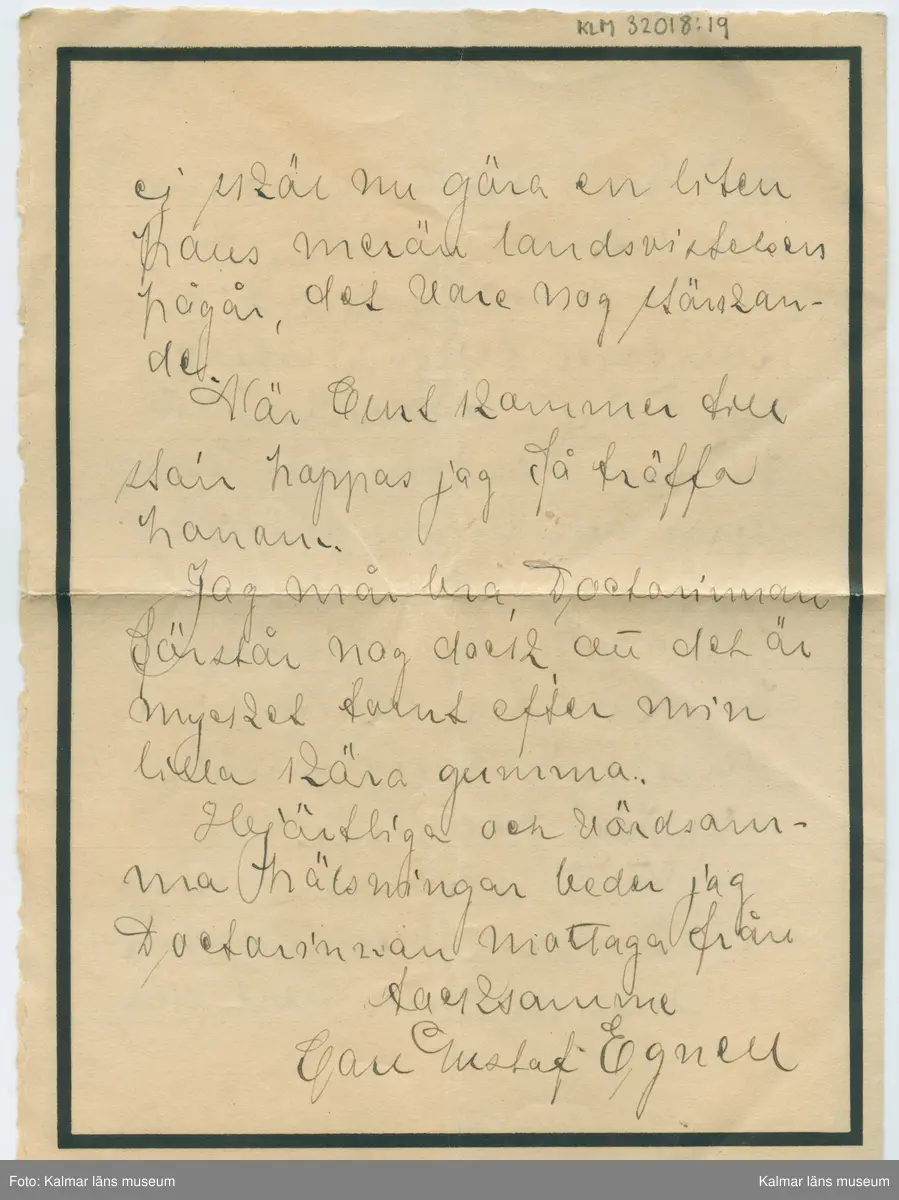 KLM 32018:19
ej skäl nu göra en liten
paus medan landsvistelsen
pågår, det vore nog stärkan-
de.
När Curt kommer till
sta'n hoppas jag få träffa
honom.
Jag mår bra, Doctorinnan
förstår nog dock, att det är
mycket tomt efter min
lilla kära gumma.
Hjärtliga och vördsam-
ma hälsningar beder jag
Doctorinnan mottaga från
tacksamme
Carl Gustaf Egnell
Foto: Kalmar läns museum
Kalmar läns museum